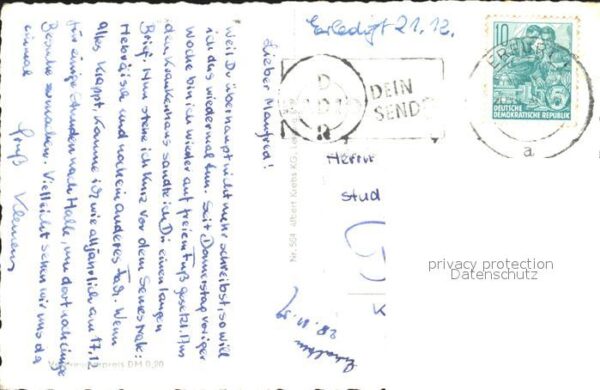 Erledigt 21.12.
10
DEUTSCHE
DEMOKRATISCHE REPUBLIK
ERFURT
a
D
D
R
DEIN
SENDER
Lieber Manfred!
Weil Du überhaupt nicht mehr schreibst, so will
ich das wieder mal tun. Seit Donnerstag voriger
Woche bin ich wieder auf freien Fuß gesetzt. Aus
dem Krankenhaus sandte ich Dir einen langen
Brief. Nun stehe ich kurz vor dem Semestral:
Hebräisch und noch ein anderes Fach. Wenn
alles klappt, komme ich, wie alljährlich am 17.12
für einige Stunden nach Halle, um dort noch einige
Besuche zu machen. Vielleicht sehen wir uns da
einmal
Gruß Klemens
Nr. 504 Albert Krebs KG
Herrn
stud
K
Erhalten
28.11.59
Verbraucherpreis DM 0,20
privacy protection
Datenschutz